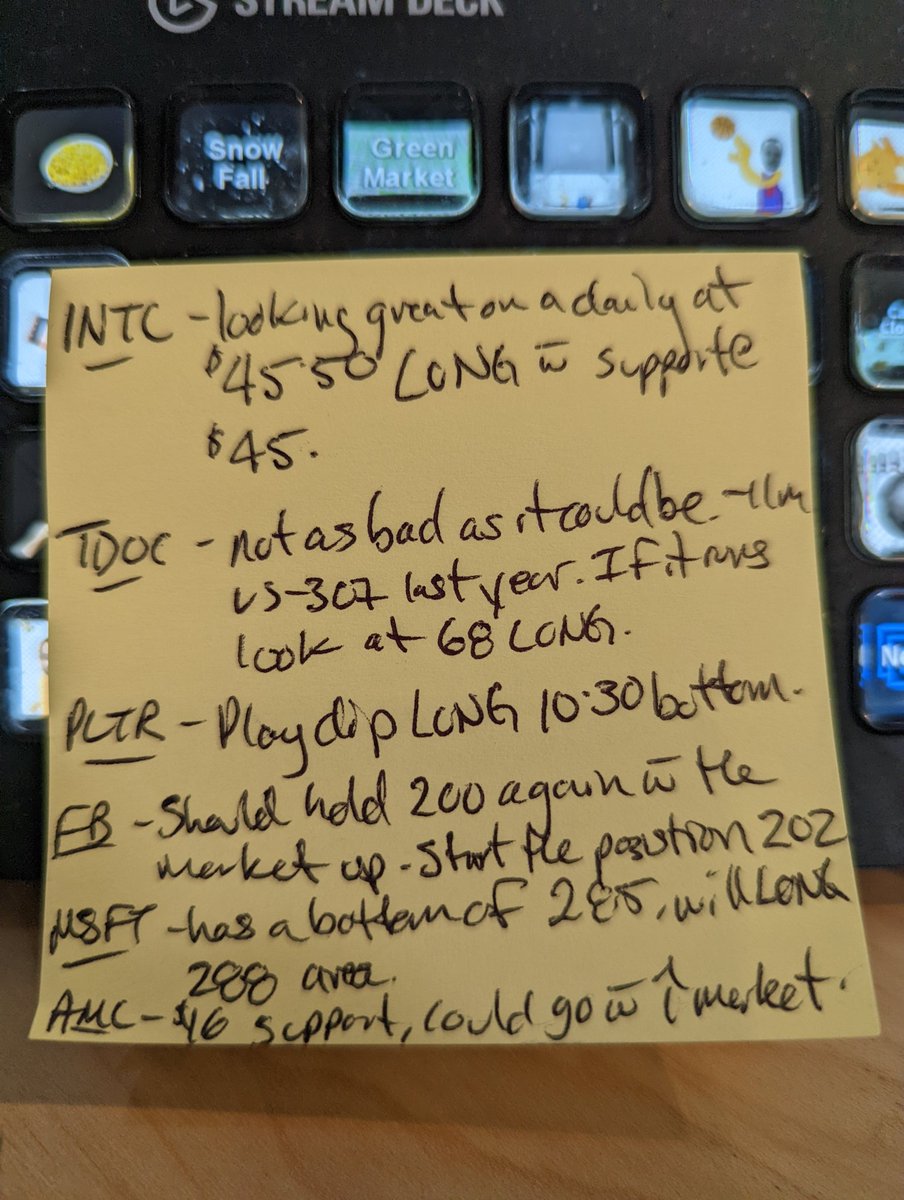 STREAM DECK
Snow
Fall
Green
Market
INTC - looking great on a daily at
$45.50 LONG w̄ support @
$45.
TDOC - not as bad as it could be. -11m
vs -307 last year. If it runs
look at 68 LONG.
PLTR - Play dip LONG 10:30 bottom.
FB - Should hold 200 again w̄ the
market up - Start the position 202
MSFT - has a bottom of 285, will LONG
288 area.
AMC - $16 support, could go w̄ ↑ market.